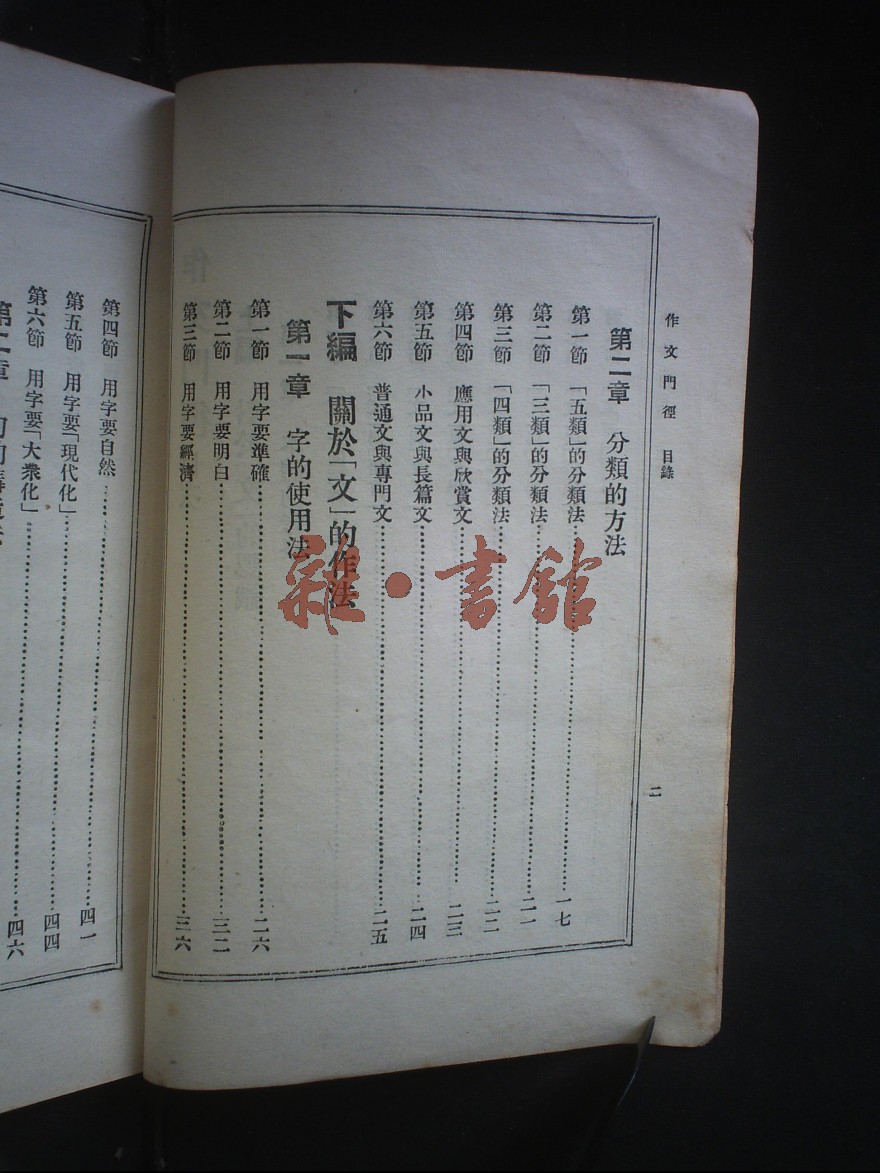 作文門徑 目錄 二
第二章 分類的方法
第一節 「五類」的分類法 一七
第二節 「三類」的分類法 二一
第三節 「四類」的分類法 二二
第四節 應用文與欣賞文 二三
第五節 小品文與長篇文 二四
第六節 普通文與專門文 二五
下編 關於「文」的作法
第一章 字的使用法
第一節 用字要準確 二六
第二節 用字要明白 三二
第三節 用字要經濟 三六
第四節 用字要自然 四一
第五節 用字要「現代化」 四四
第六節 用字要「大衆化」 四六
第二章
雜·書館